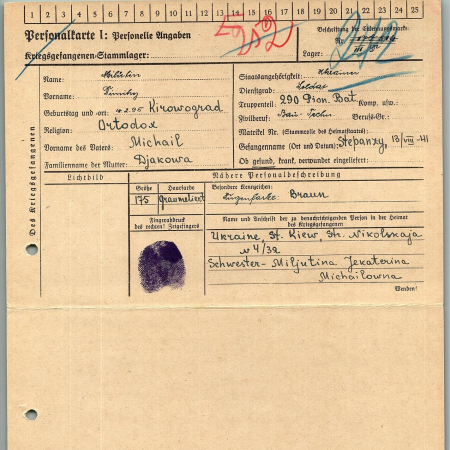 1 2 3 4 5 6 7 8 9 10 11 12 13 14 15 16 17 18 19 20 21 22 23 24 25
Personalkarte I: Personelle Angaben
Kriegsgefangenen-Stammlager:
Beschriftung der Erkennungsmarke
Nr.
Lager:
Des Kriegsgefangenen
Name:
Vorname:
Geburtstag und -ort: Kirowograd
Religion: Ortodox
Vorname des Vaters: Michail
Familienname der Mutter: Djakowa
Staatsangehörigkeit: Ukrainer
Dienstgrad: Soldat
Truppenteil: 290 Pion. Bat. Komp. usw.:
Zivilberuf: Bau-Techn. Berufs-Gr.:
Matrikel Nr. (Stammrolle des Heimatstaates):
Gefangennahme (Ort und Datum): Stepanxy, 13/VIII-41
Ob gesund, krank, verwundet eingeliefert:
Lichtbild
Nähere Personalbeschreibung
Größe Haarfarbe
175 graumeliert
Besondere Kennzeichen:
Augenfarbe: Braun
Fingerabdruck
des rechten! Zeigefingers
Name und Anschrift der zu benachrichtigenden Person in der Heimat
des Kriegsgefangenen
Ukraine, St. Kiew, Str. Nikolskaja
N 4/32
Schwester- Miljutina Jekaterina
Michailowna
Wenden!